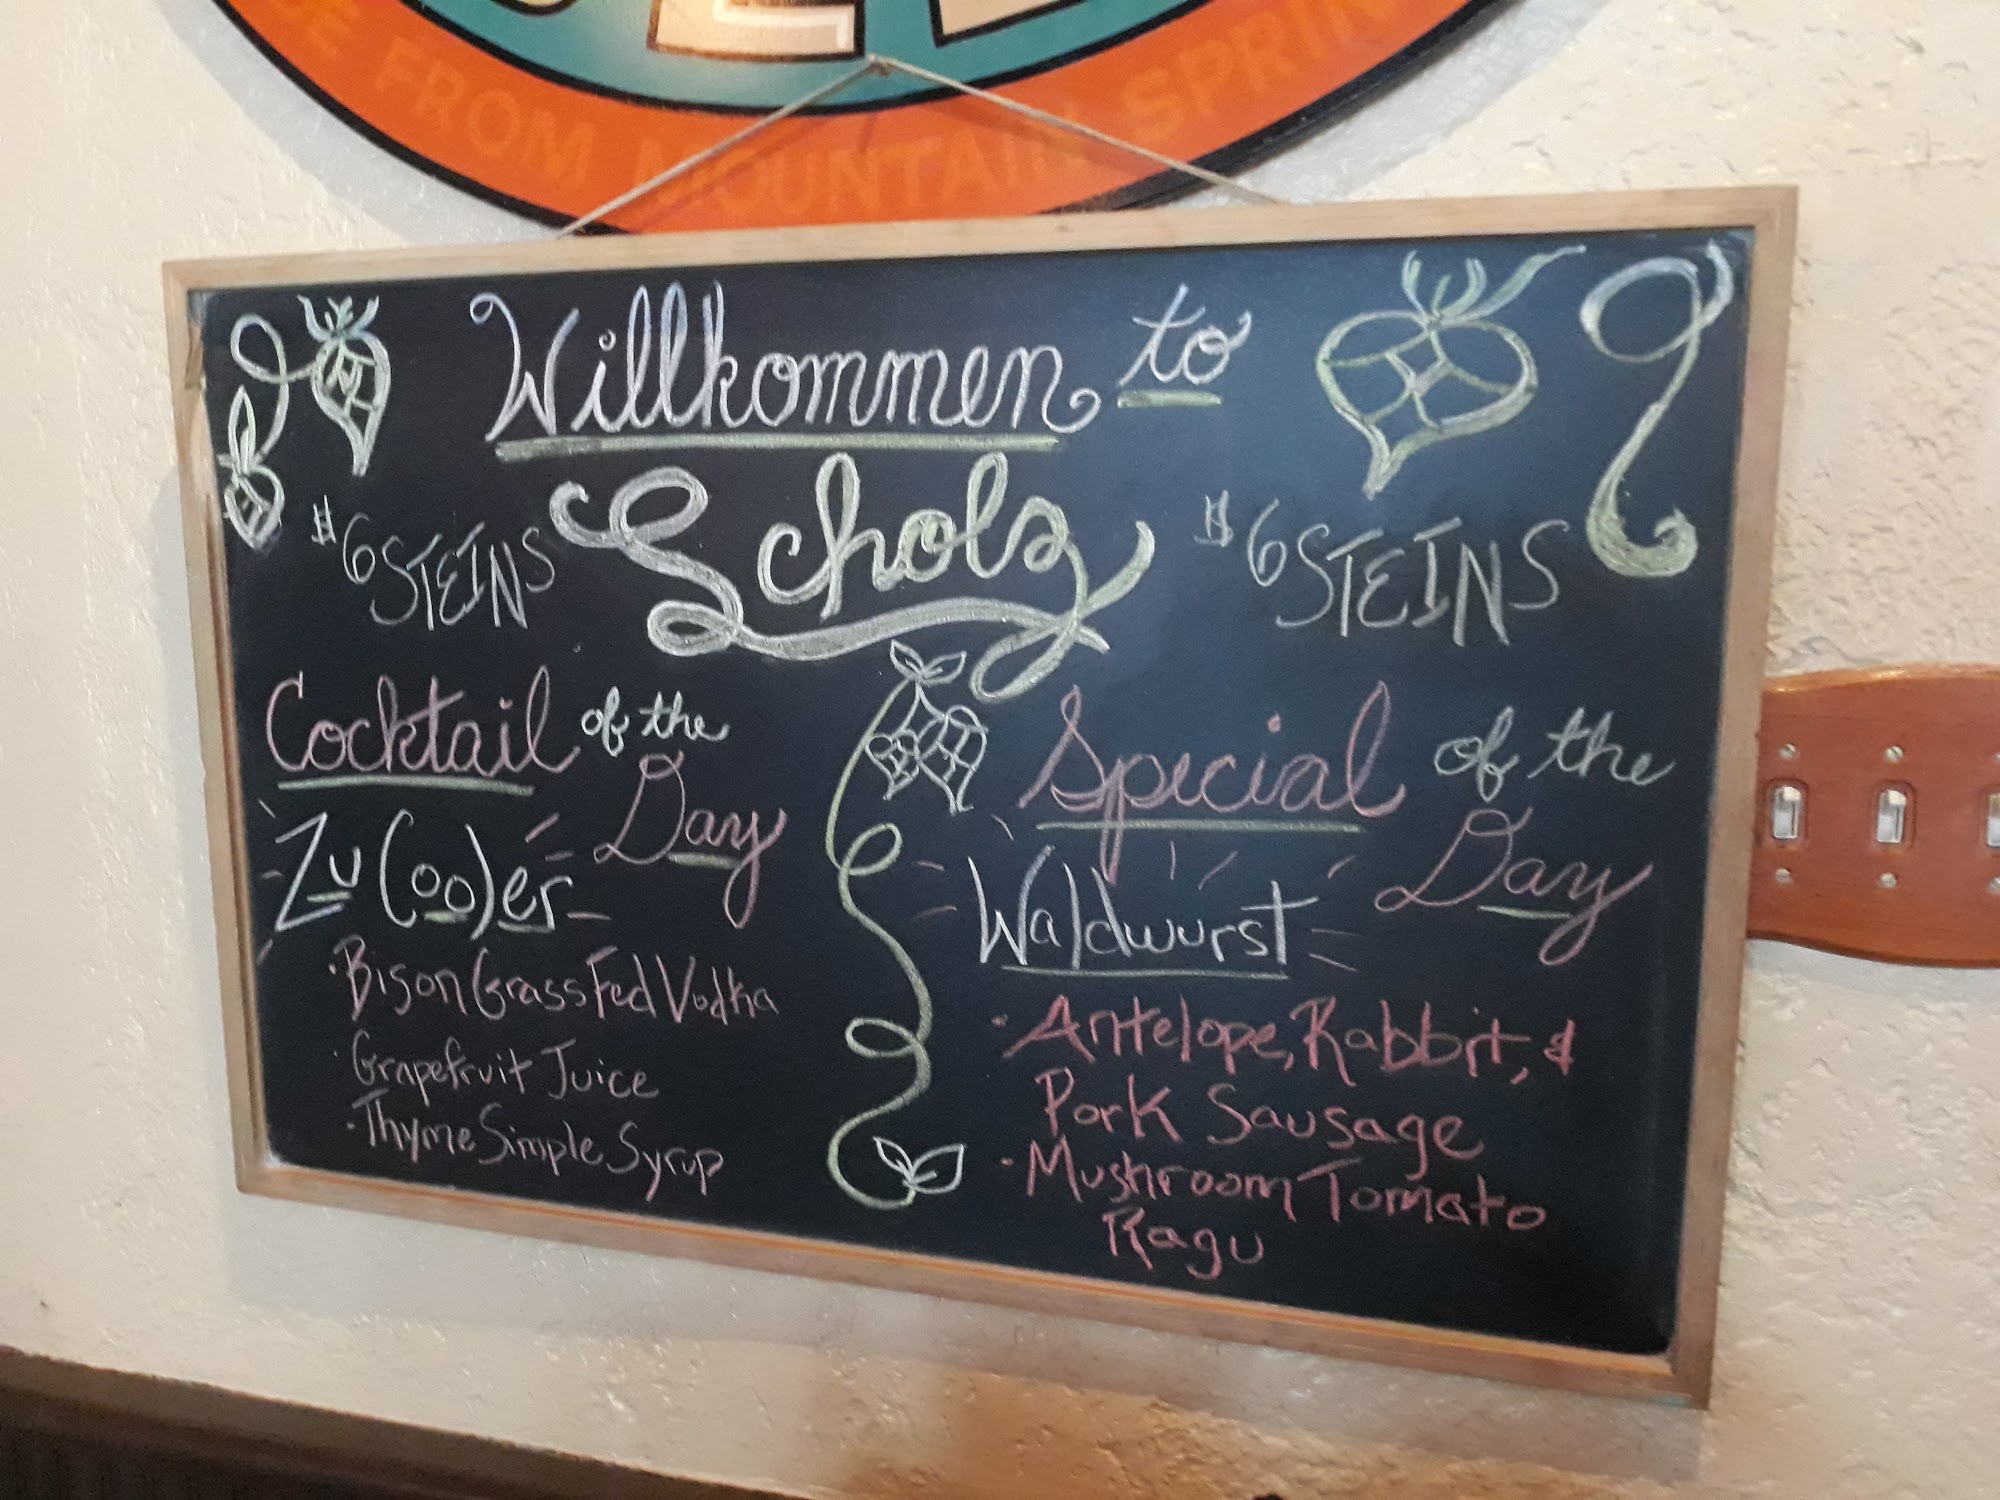 FROM MOUNTAIN SPRIN
Willkommen to
Scholz
$6 STEINS
$6 STEINS
Cocktail of the
Day
Zu Cooler
· Bison Grass Fed Vodka
· Grapefruit Juice
· Thyme Simple Syrup
Special of the
Day
Waldwurst
· Antelope, Rabbit, &
Pork Sausage
· Mushroom Tomato
Ragu